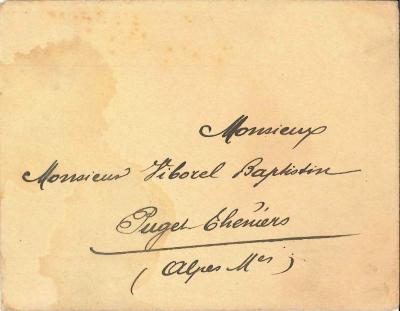 Monsieur
Monsieur Viborel Baptistin
Puget Théniers
(Alpes Mes)